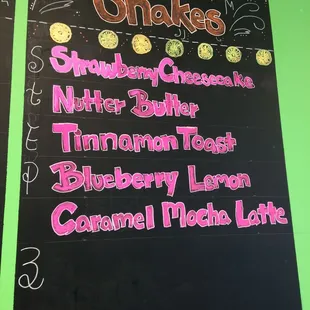 Shakes
Strawberry Cheesecake
Nutter Butter
Tinnamon Toast
Blueberry Lemon
Caramel Mocha Latte
STEP
2